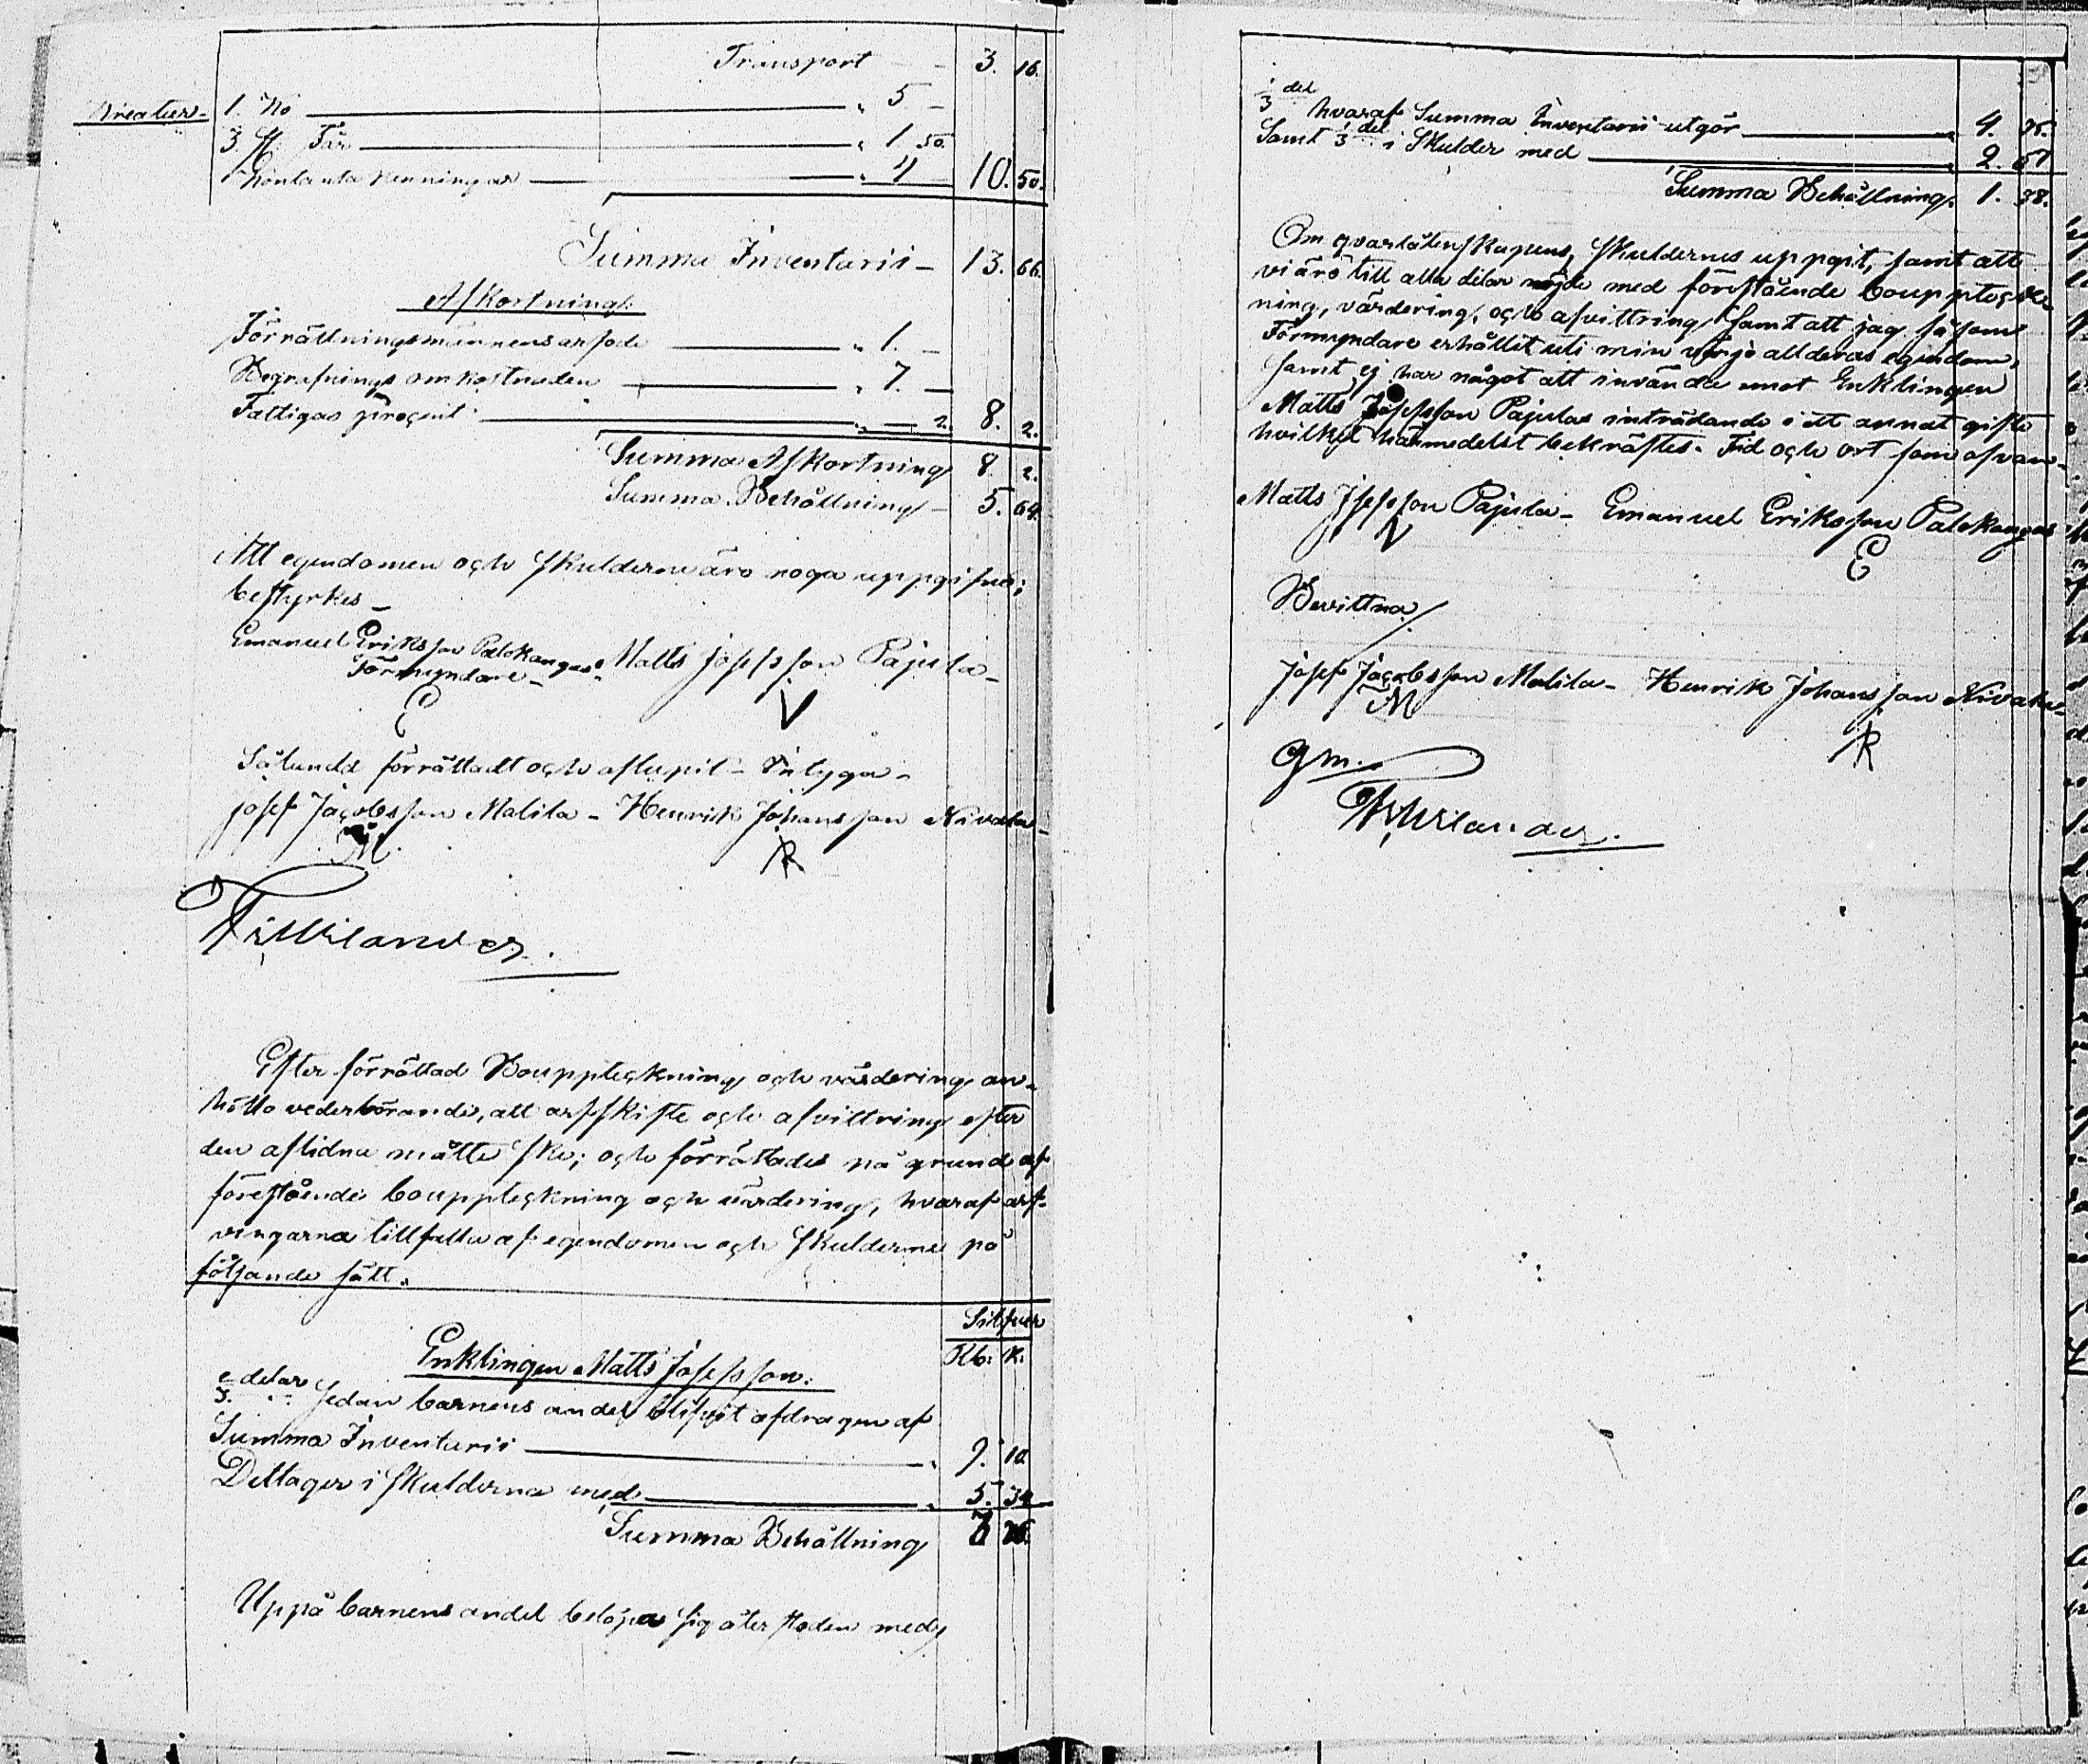 Transport — 3. 16.
Kreatur. 1. Ko — " 5 —
3. st. Får — " 1 50.
Kontanta Penningar — " 4 — 10. 50.
Summa Inventarii — 13. 66.
Afkortning:
Förrättningsmännens arfode — " 1. —
Begrafnings omkostnaden — " 7. —
Fattigas procent — " — 2. 8. 2.
Summa Afkortning 8. 2.
Summa Behållning — 5. 64.
Att egendomen och skulderne äro noga uppgifne;
bestyrkes —
Emanuel Eriksson Palokangas. Matts Josefsson Pajula —
Förmyndare —
E V
Sålunda förrättadt och aflupit — Intyga —
Josef Jacobsson Malila — Henrik Johansson Nivala —
M R
Wilander.
Efter förrättad Bouppteckning och värdering an-
höllo vederbörande, att arfskifte och afvittring efter
den aflidna måtte ske; och förrättades på grund af
förestående bouppteckning och värdering, hvaraf arf-
vingarna tillfalla af egendomen och skulderne på
följande sätt.
Silfver
Rb: K:
Enklingen Matts Josefsson:
2/3 delar sedan barnens andel blifvit afdragen af
Summa Inventarii — " 9. 10
Deltager i skulderna med — " 5. 34
Summa Behållning 3 76.
Uppå barnens andel belöpas sig åter stoden med
1/3 del hvaraf Summa Inventarii utgör — " 4. 55.
Samt 1/3 del i Skulder med — 2. 67
Summa Behållning. 1. 88.
Om qvarlåtenskapens, skuldernes uppgit, samt att
vi äro till alla delar nöjde med förestående bouppteck-
ning, värdering, och afvittring samt att jag såsom
Förmyndare erhållit uti min värjo all deras egendom,
samt ej har något att invända emot Enklingen
Matts Josefsson Pajulas inträdande i ett annat gifte
hvilket härmedelst bekräftes. Tid och ort som ofvan —
Matts Josefsson Pajula — Emanuel Eriksson Palokangas
V E
Bevittna
Josef Jacobsson Malila — Henrik Johansson Nivala —
M R
gm.
Wilander.